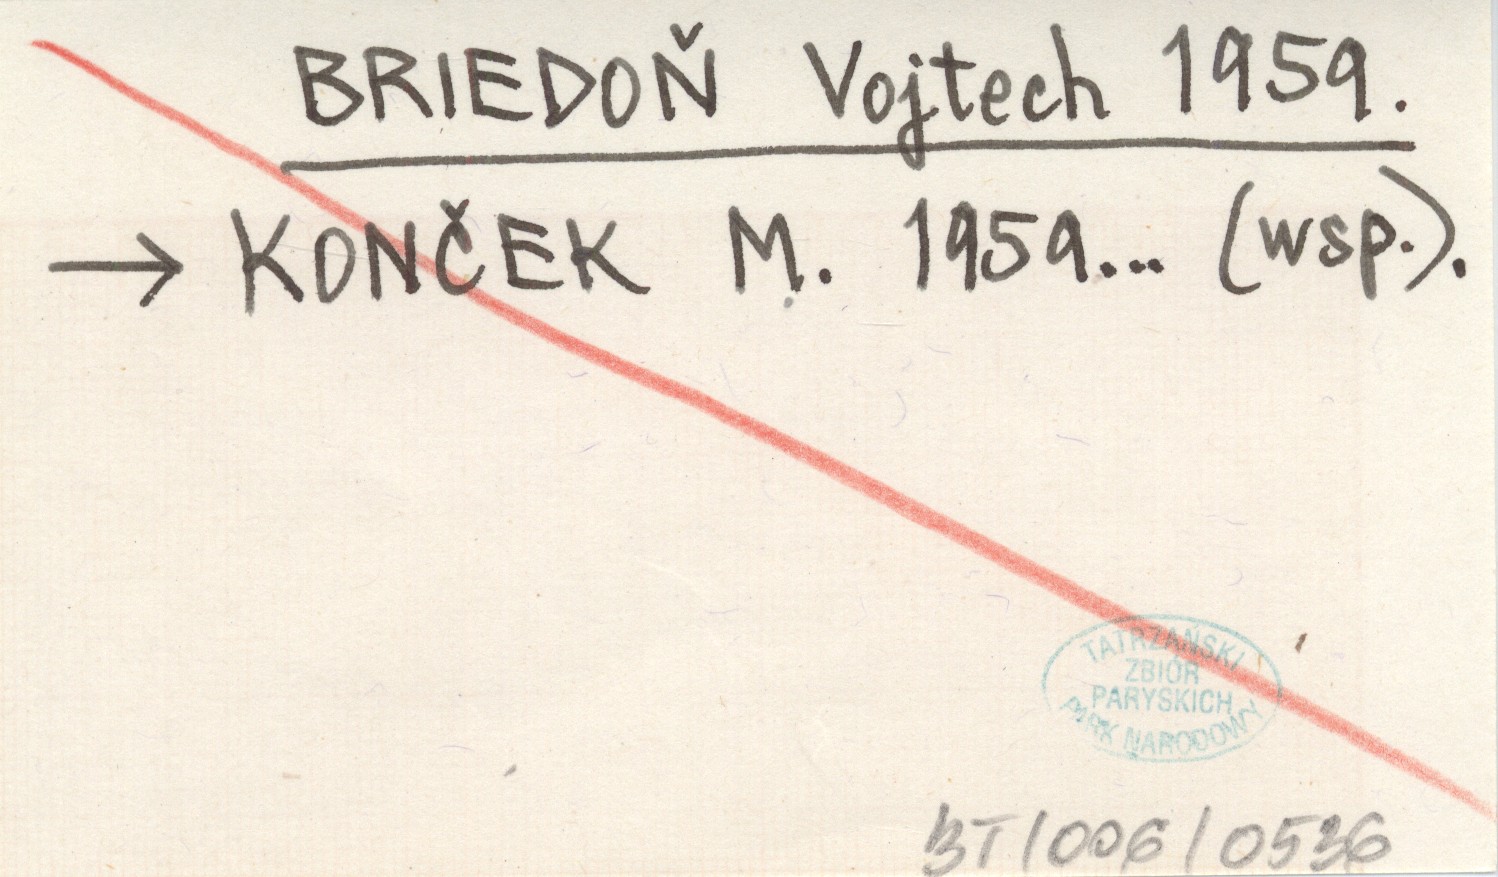 BRIEDOŇ Vojtech 1959.
→ KONČEK M. 1959... (wsp.).
TATRZAŃSKI
ZBIÓR
PARYSKICH
PARK NARODOWY
BT/006/0536